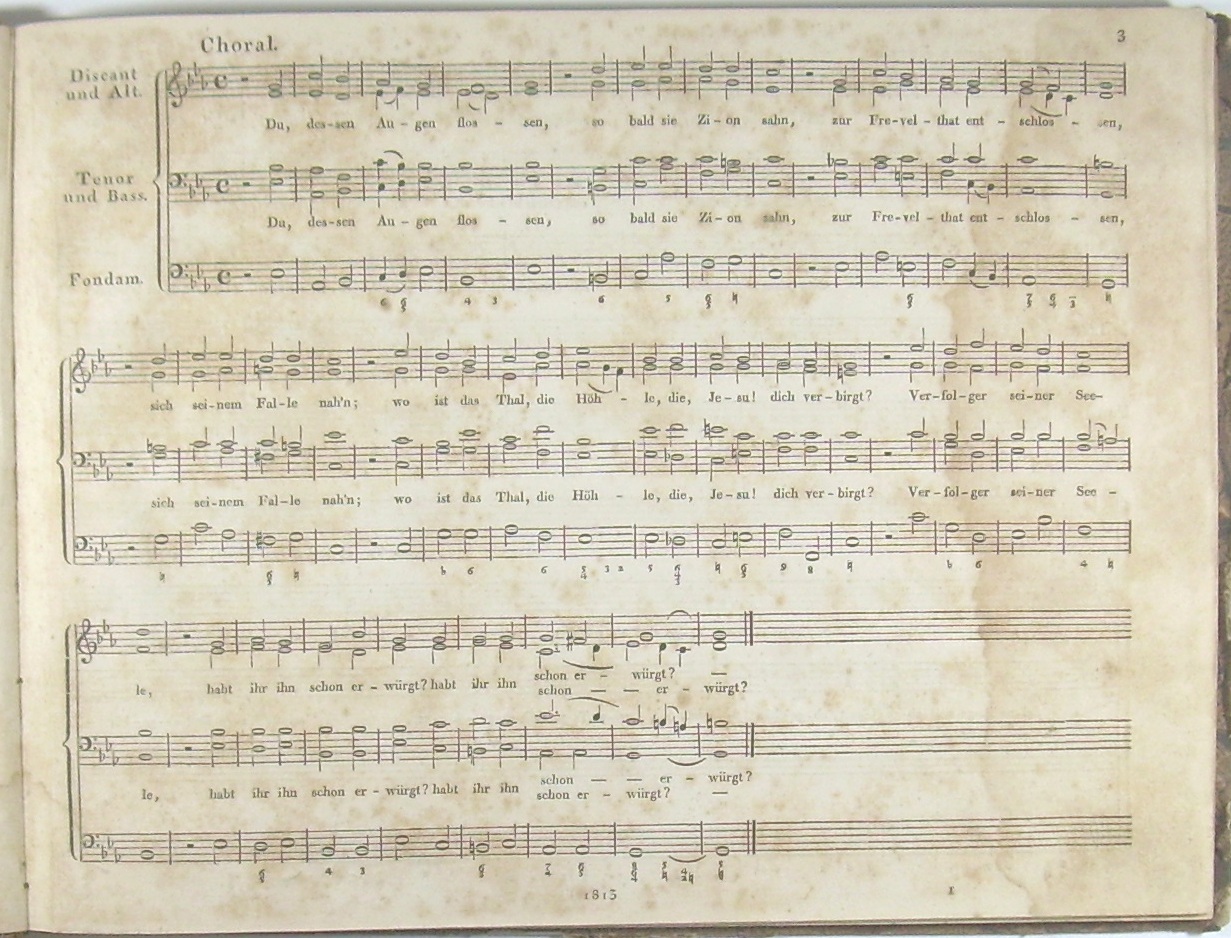 3
Choral.
Discant
und Alt.
Du, des-sen Au - gen flos - sen, so bald sie Zi - on sahn, zur Fre-vel - that ent - schlos - sen,
Tenor
und Bass.
Du, des-sen Au - gen flos - sen, so bald sie Zi - on sahn, zur Fre-vel - that ent - schlos - sen,
Fondam.
sich sei-nem Fal-le nah'n; wo ist das Thal, die Höh - le, die, Je-su! dich ver-birgt? Ver-fol-ger sei-ner See-
sich sei-nem Fal-le nah'n; wo ist das Thal, die Höh - le, die, Je-su! dich ver-birgt? Ver-fol-ger sei-ner See -
le, habt ihr ihn schon er - würgt? habt ihr ihn schon er - würgt? —
schon — — er - würgt?
le, habt ihr ihn schon er - würgt? habt ihr ihn schon — — er - würgt?
schon er - würgt? —
1813
1